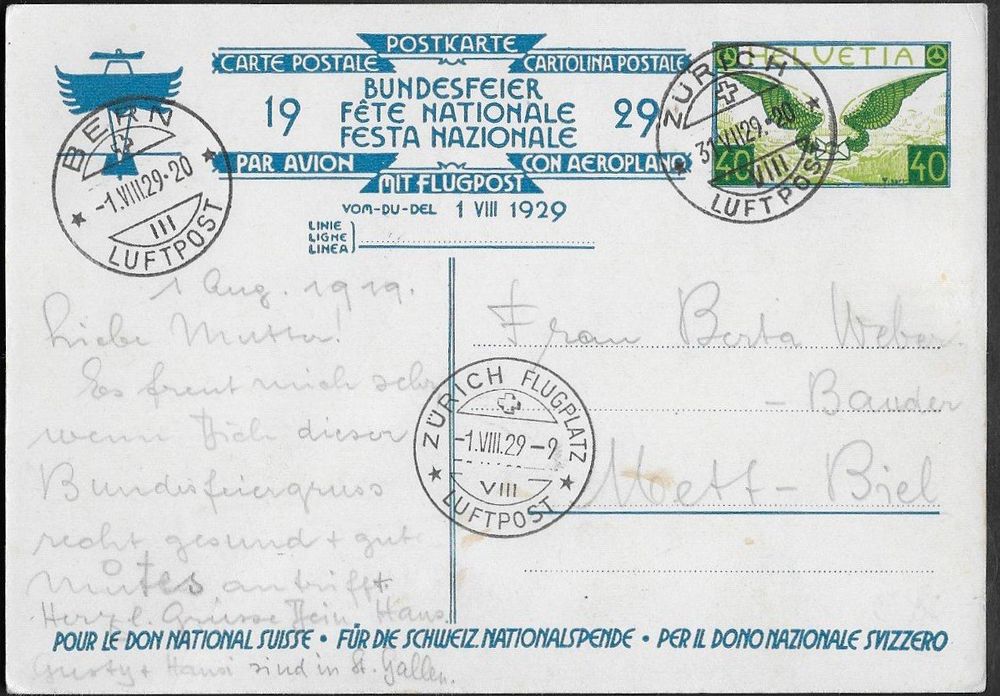 POSTKARTE
CARTE POSTALE CARTOLINA POSTALE
BUNDESFEIER
19 FÊTE NATIONALE 29
FESTA NAZIONALE
PAR AVION CON AEROPLANO
MIT FLUGPOST
VOM-DU-DEL 1 VIII 1929
LINIE
LIGNE
LINEA
HELVETIA
40 40
ZÜRICH
31.VII.29.-20
VIII
LUFTPOST
BERN
-1.VIII.29.-20
III
LUFTPOST
ZÜRICH FLUGPLATZ
-1.VIII.29-9
VIII
LUFTPOST
1 Aug. 1929.
Liebe Mutter!
Es freut mich sehr
wenn Dich dieser
Bundesfeiergruss
recht gesund + gute
Mutes antrifft.
Herzl. Grüsse Dein Hans
Gusty + Hansi sind in St. Gallen.
Frau Berta Weber
- Bauder
Mett - Biel
POUR LE DON NATIONAL SUISSE • FÜR DIE SCHWEIZ. NATIONALSPENDE • PER IL DONO NAZIONALE SVIZZERO